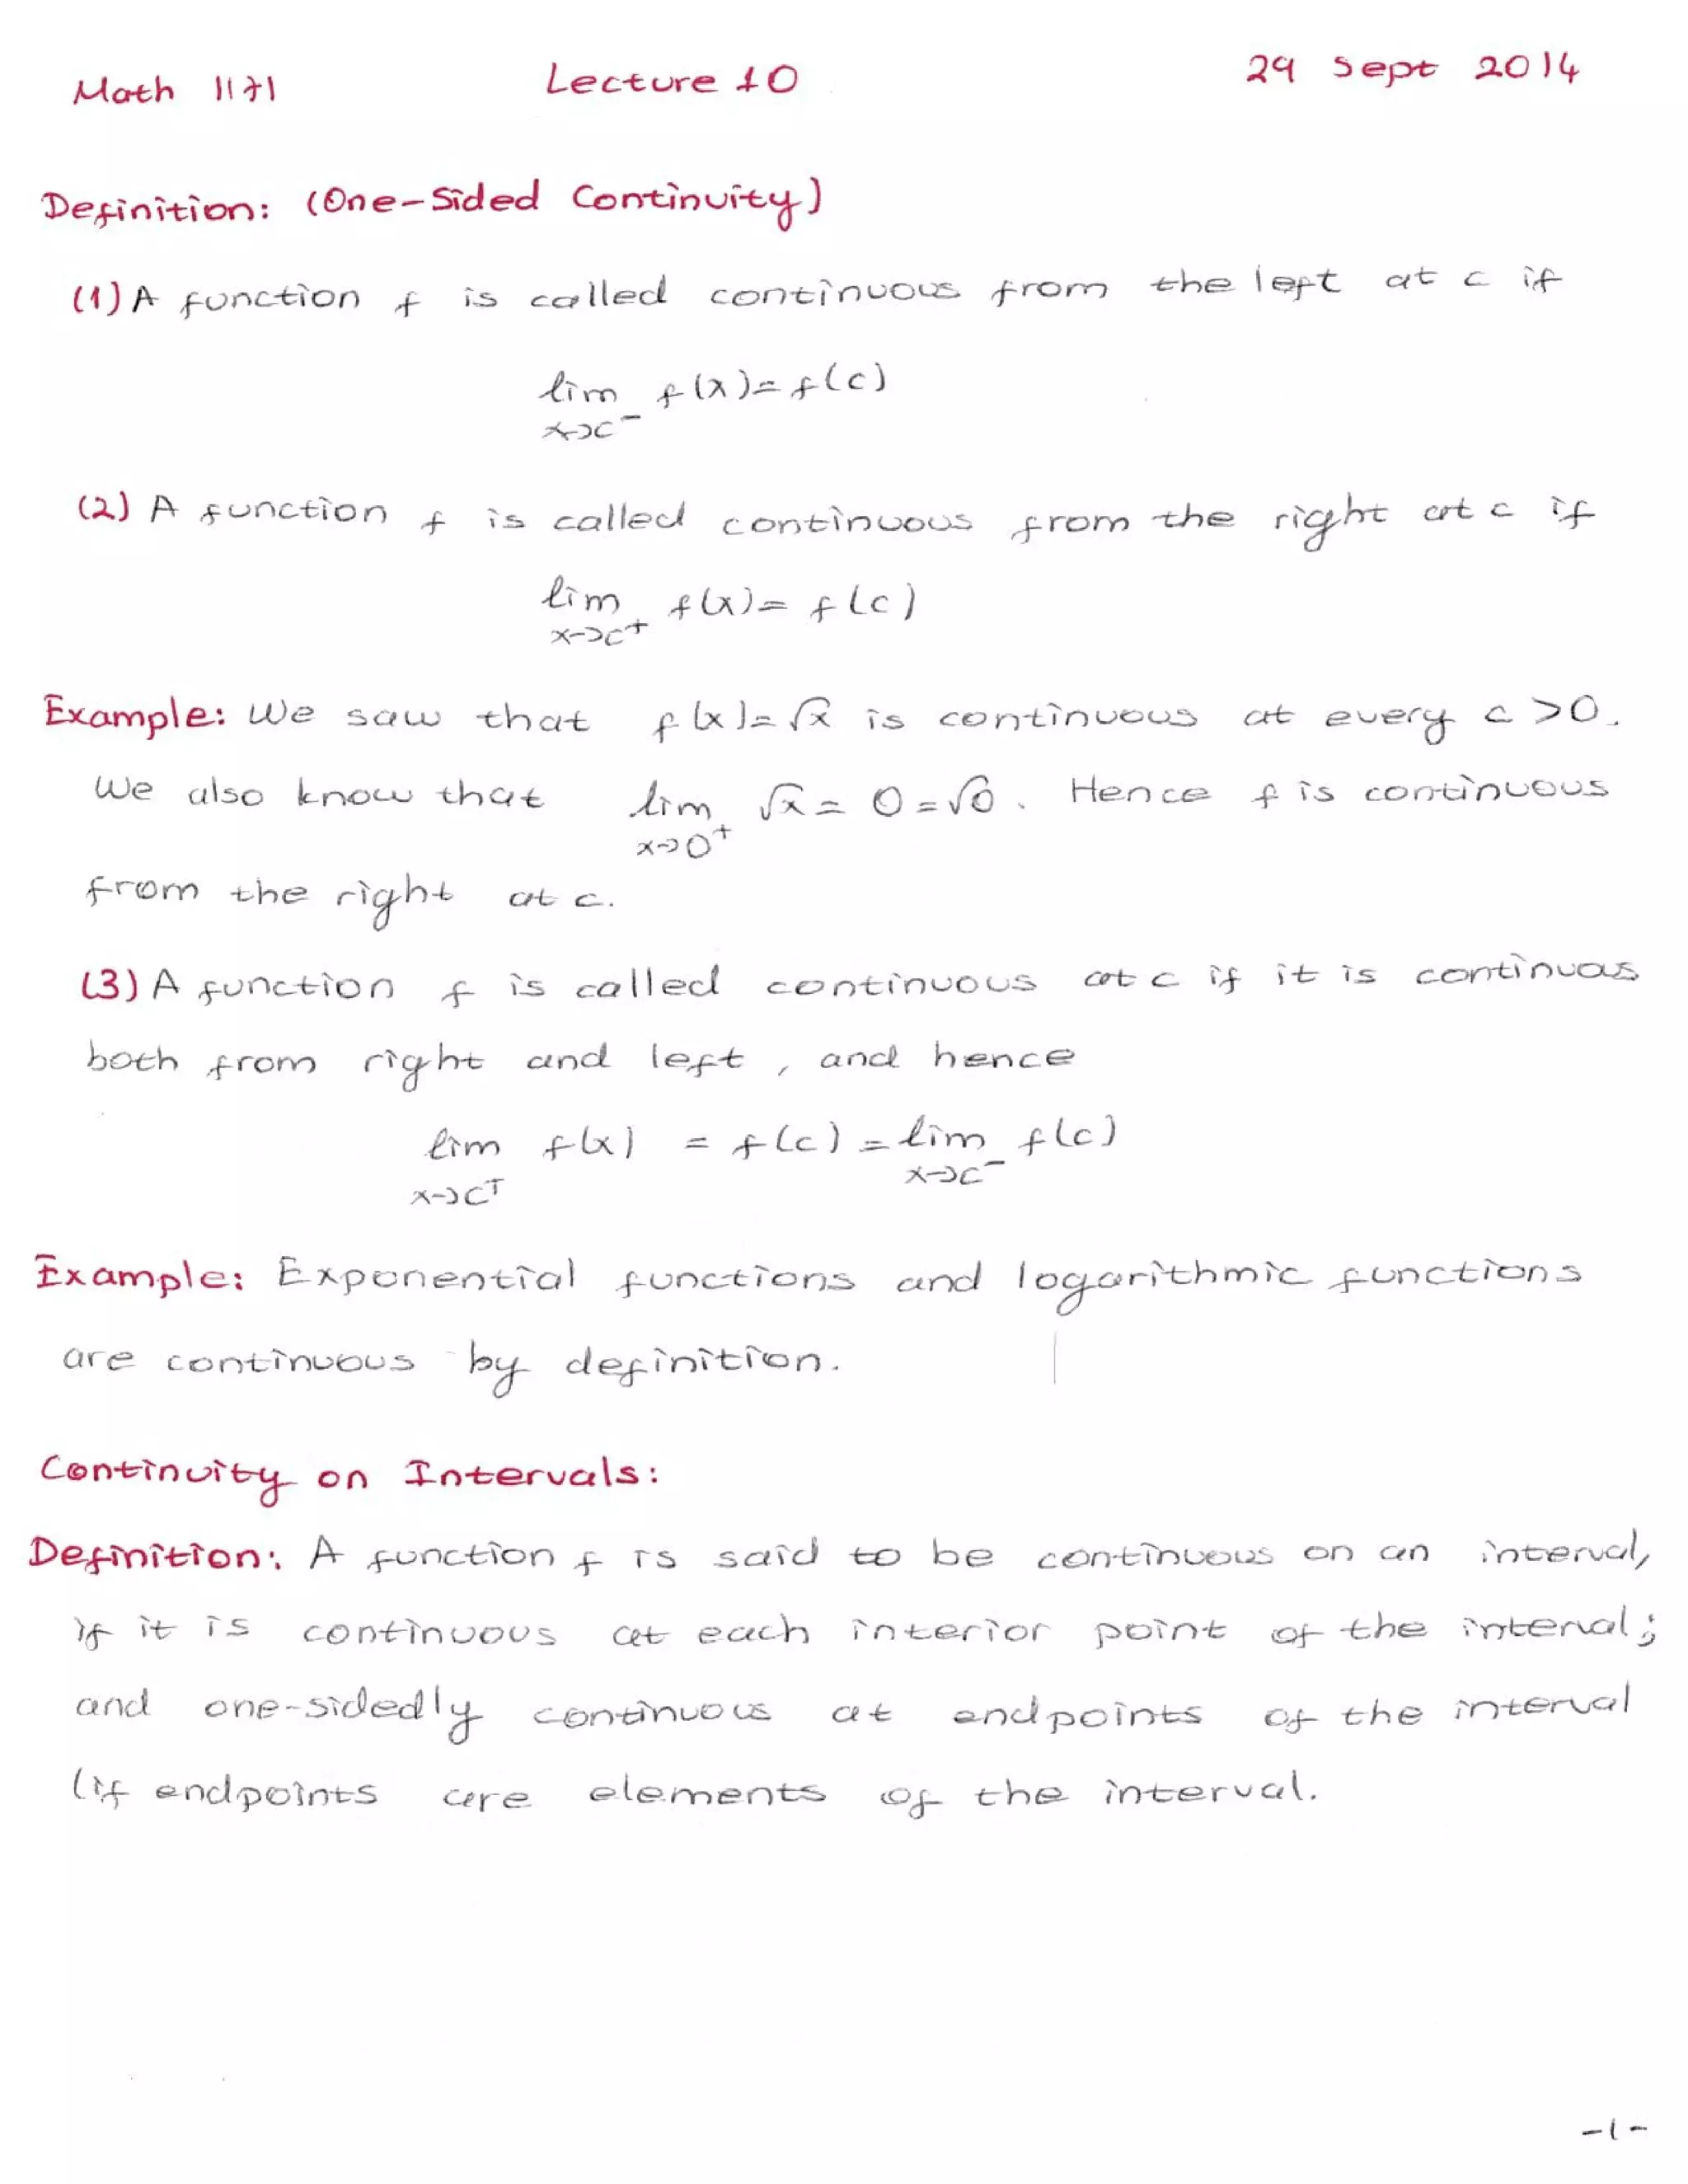 Math 1171 Lecture 10 29 Sept 2014
Definition: (One-Sided Continuity)
(1) A function f is called continuous from the left at c if
lim f(x) = f(c)
x→c⁻
(2) A function f is called continuous from the right at c if
lim f(x) = f(c)
x→c⁺
Example: We saw that f(x) = √x is continuous at every c > 0.
We also know that lim √x = 0 = √0. Hence f is continuous
x→0⁺
from the right at c.
(3) A function f is called continuous at c if it is continuous
both from right and left, and hence
lim f(x) = f(c) = lim f(c)
x→c⁺ x→c⁻
Example: Exponential functions and logarithmic functions
are continuous by definition.
Continuity on Intervals:
Definition: A function f is said to be continuous on an interval,
if it is continuous at each interior point of the interval;
and one-sidedly continuous at endpoints of the interval
(if endpoints are elements of the interval.
-1-